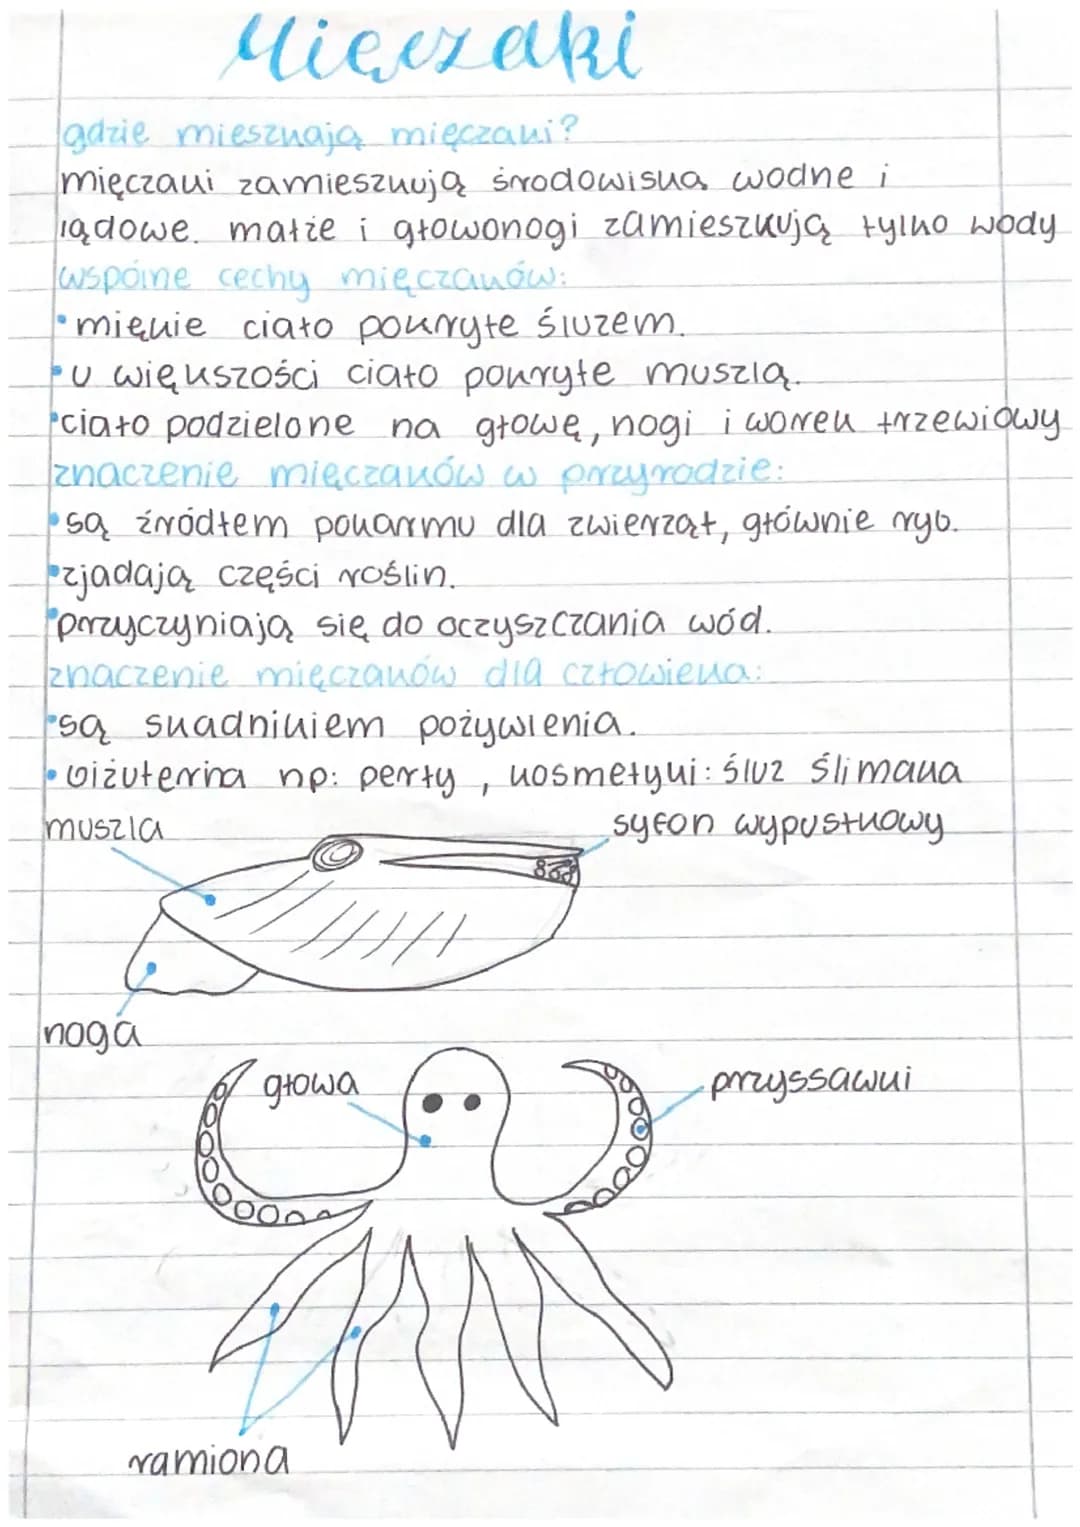 Mięczaki
gdzie mieszkają mięczaki?
mięczaki zamieszkują środowiska wodne i
lądowe. małże i głowonogi zamieszkują tylko wody
wspólne cechy mięczaków:
•miękkie ciało pokryte śluzem.
•u większości ciało pokryte muszlą.
•ciało podzielone na głowę, nogi i worek trzewiowy
znaczenie mięczaków w przyrodzie:
•są źródłem pokarmu dla zwierząt, głównie ryb.
•zjadają części roślin.
•przyczyniają się do oczyszczania wód.
znaczenie mięczaków dla człowieka:
•są skadnikiem pożywienia.
•biżuteria np: perły, kosmetyki: śluz ślimaka
muszla
syfon wypustkowy
noga
głowa
przyssawki
ramiona